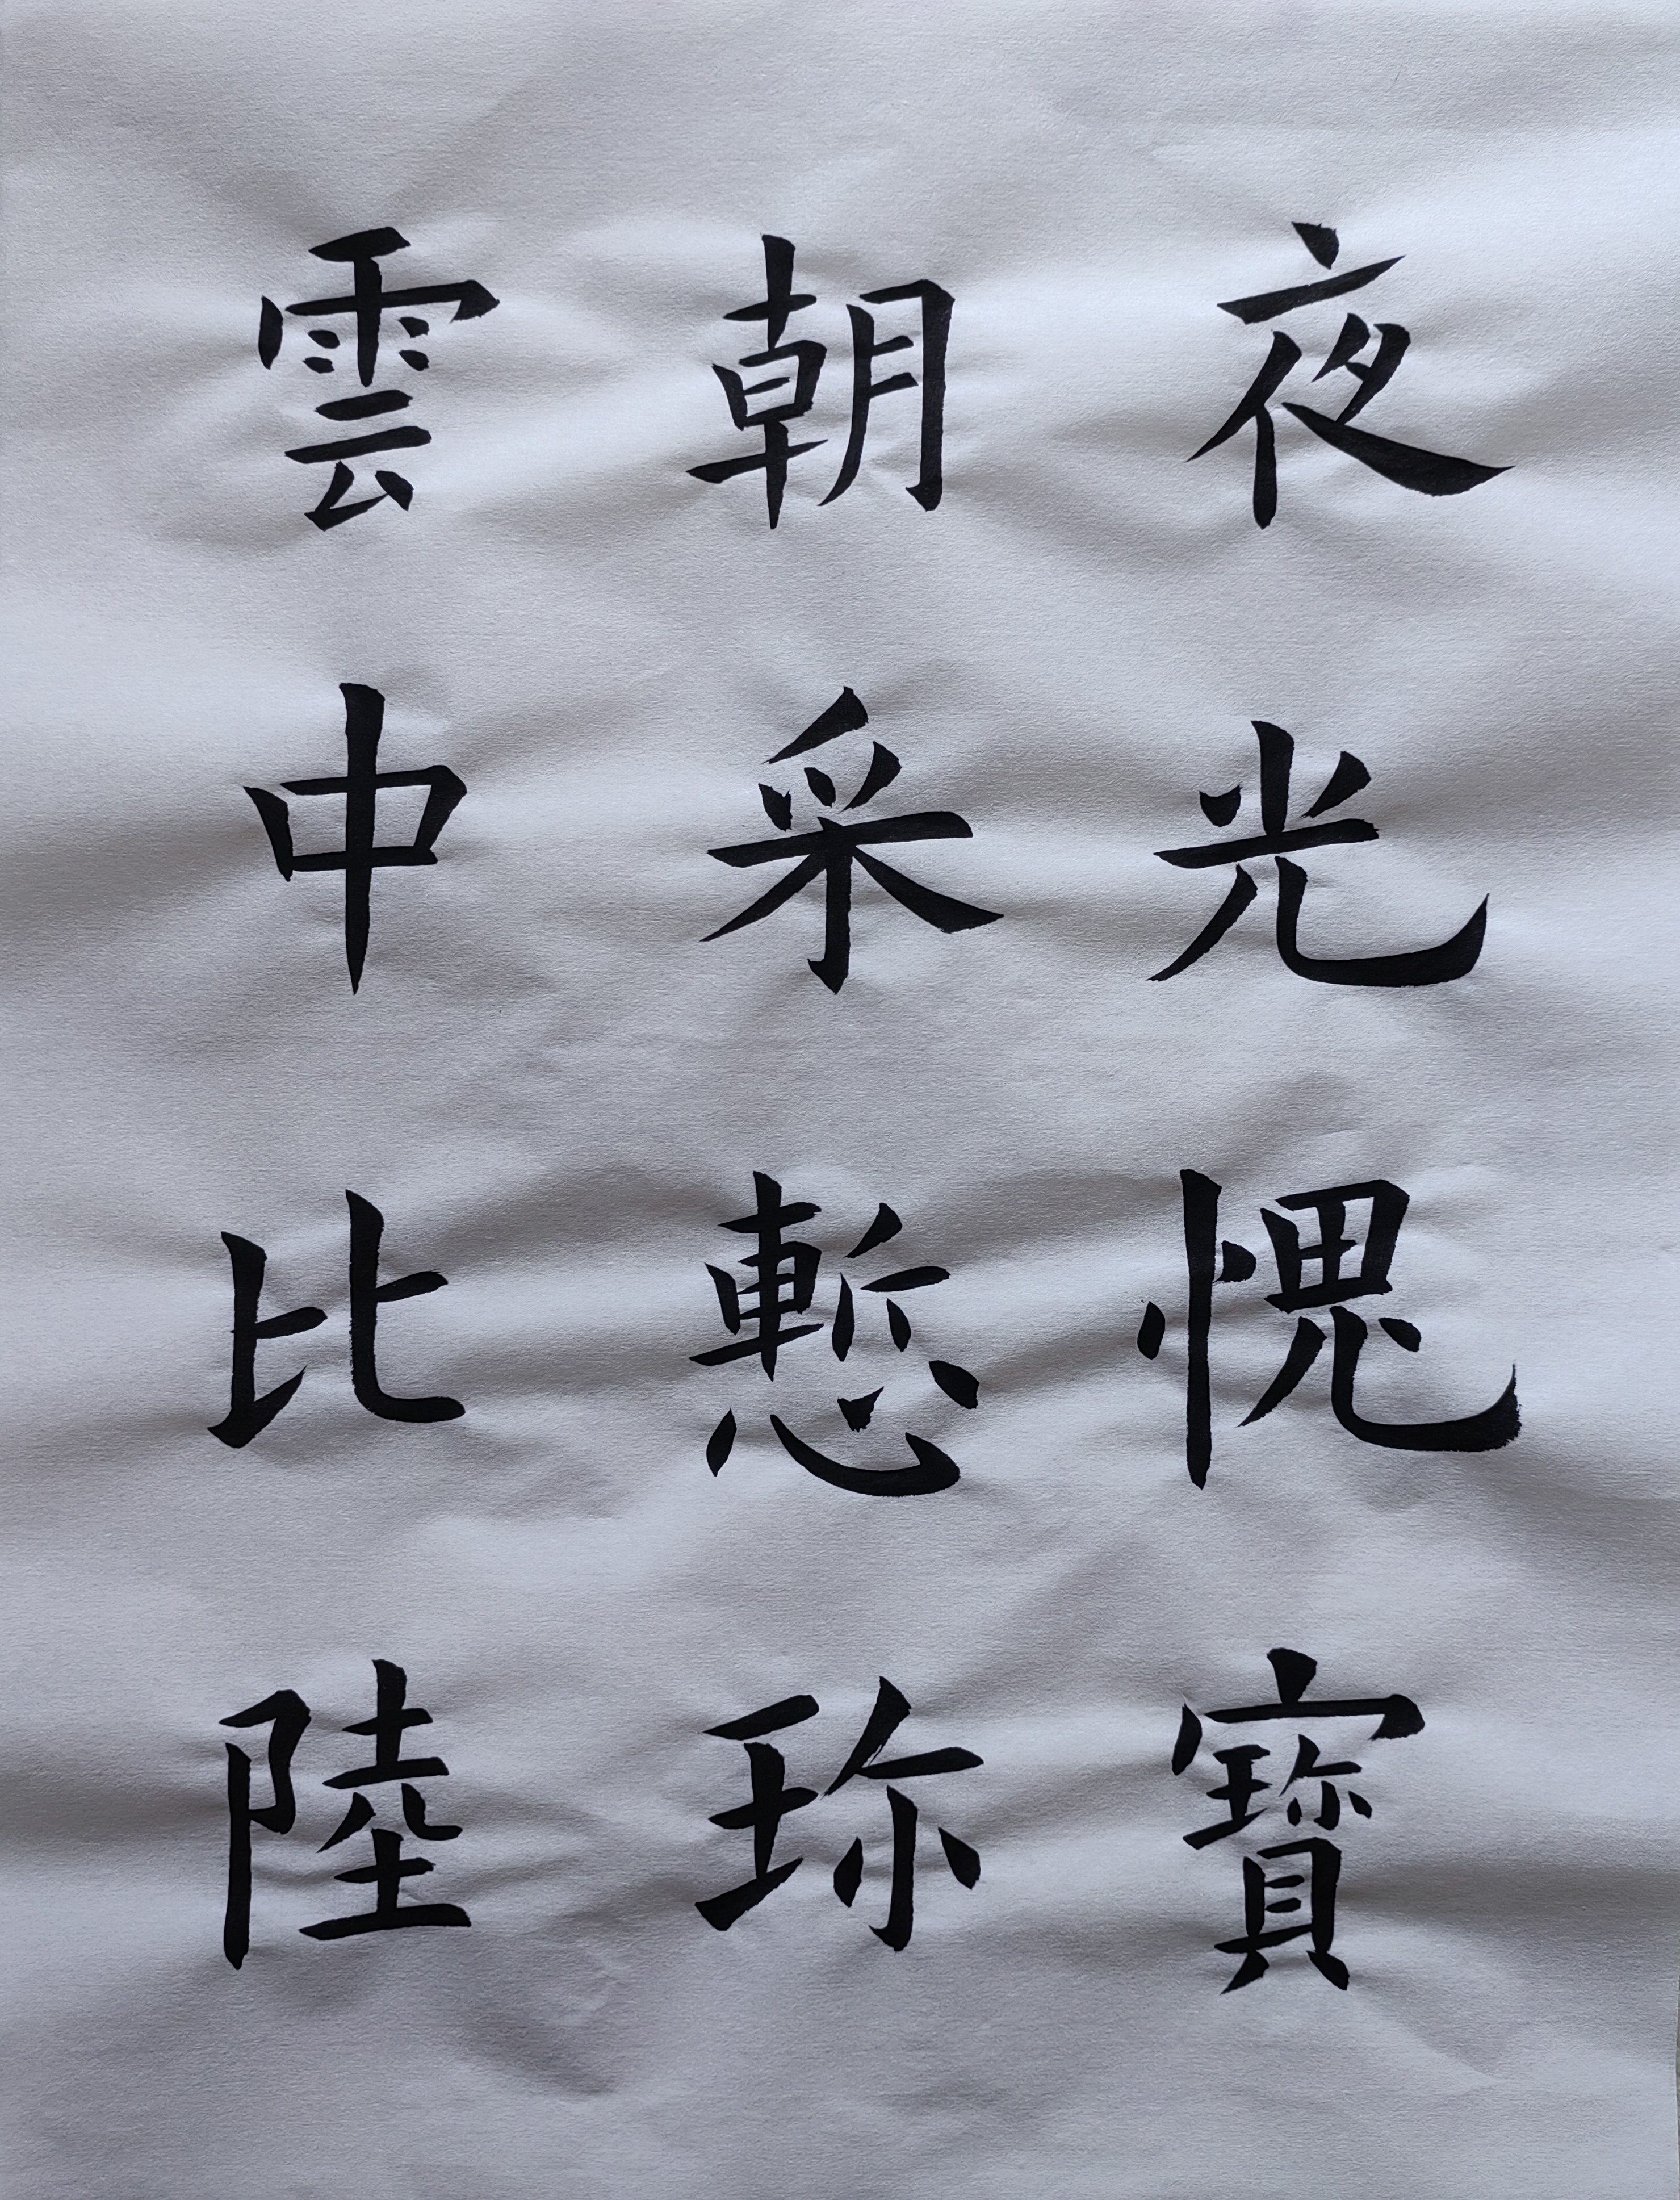 夜光愧寶
朝采慙珎
雲中比陸